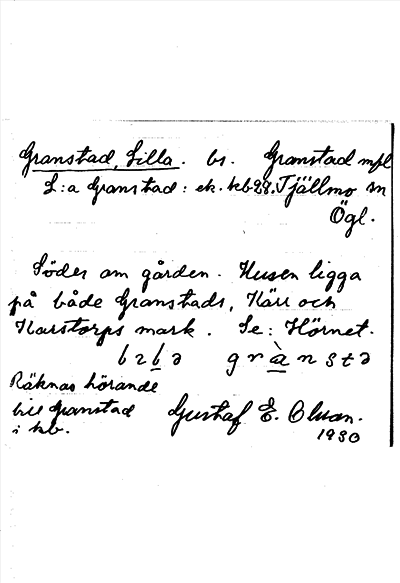 Granstad, Lilla. bs. Granstad mfl
L:a Granstad: ek. kb 28. Tjällmo sn
Ögl.
Söder om gården. Husen ligga
på både Granstads, Kärr och
Karstorps mark. Se: Hörnet.
Räknas hörande
till Granstad
i kb.
Gustaf E. Olsson.
1930